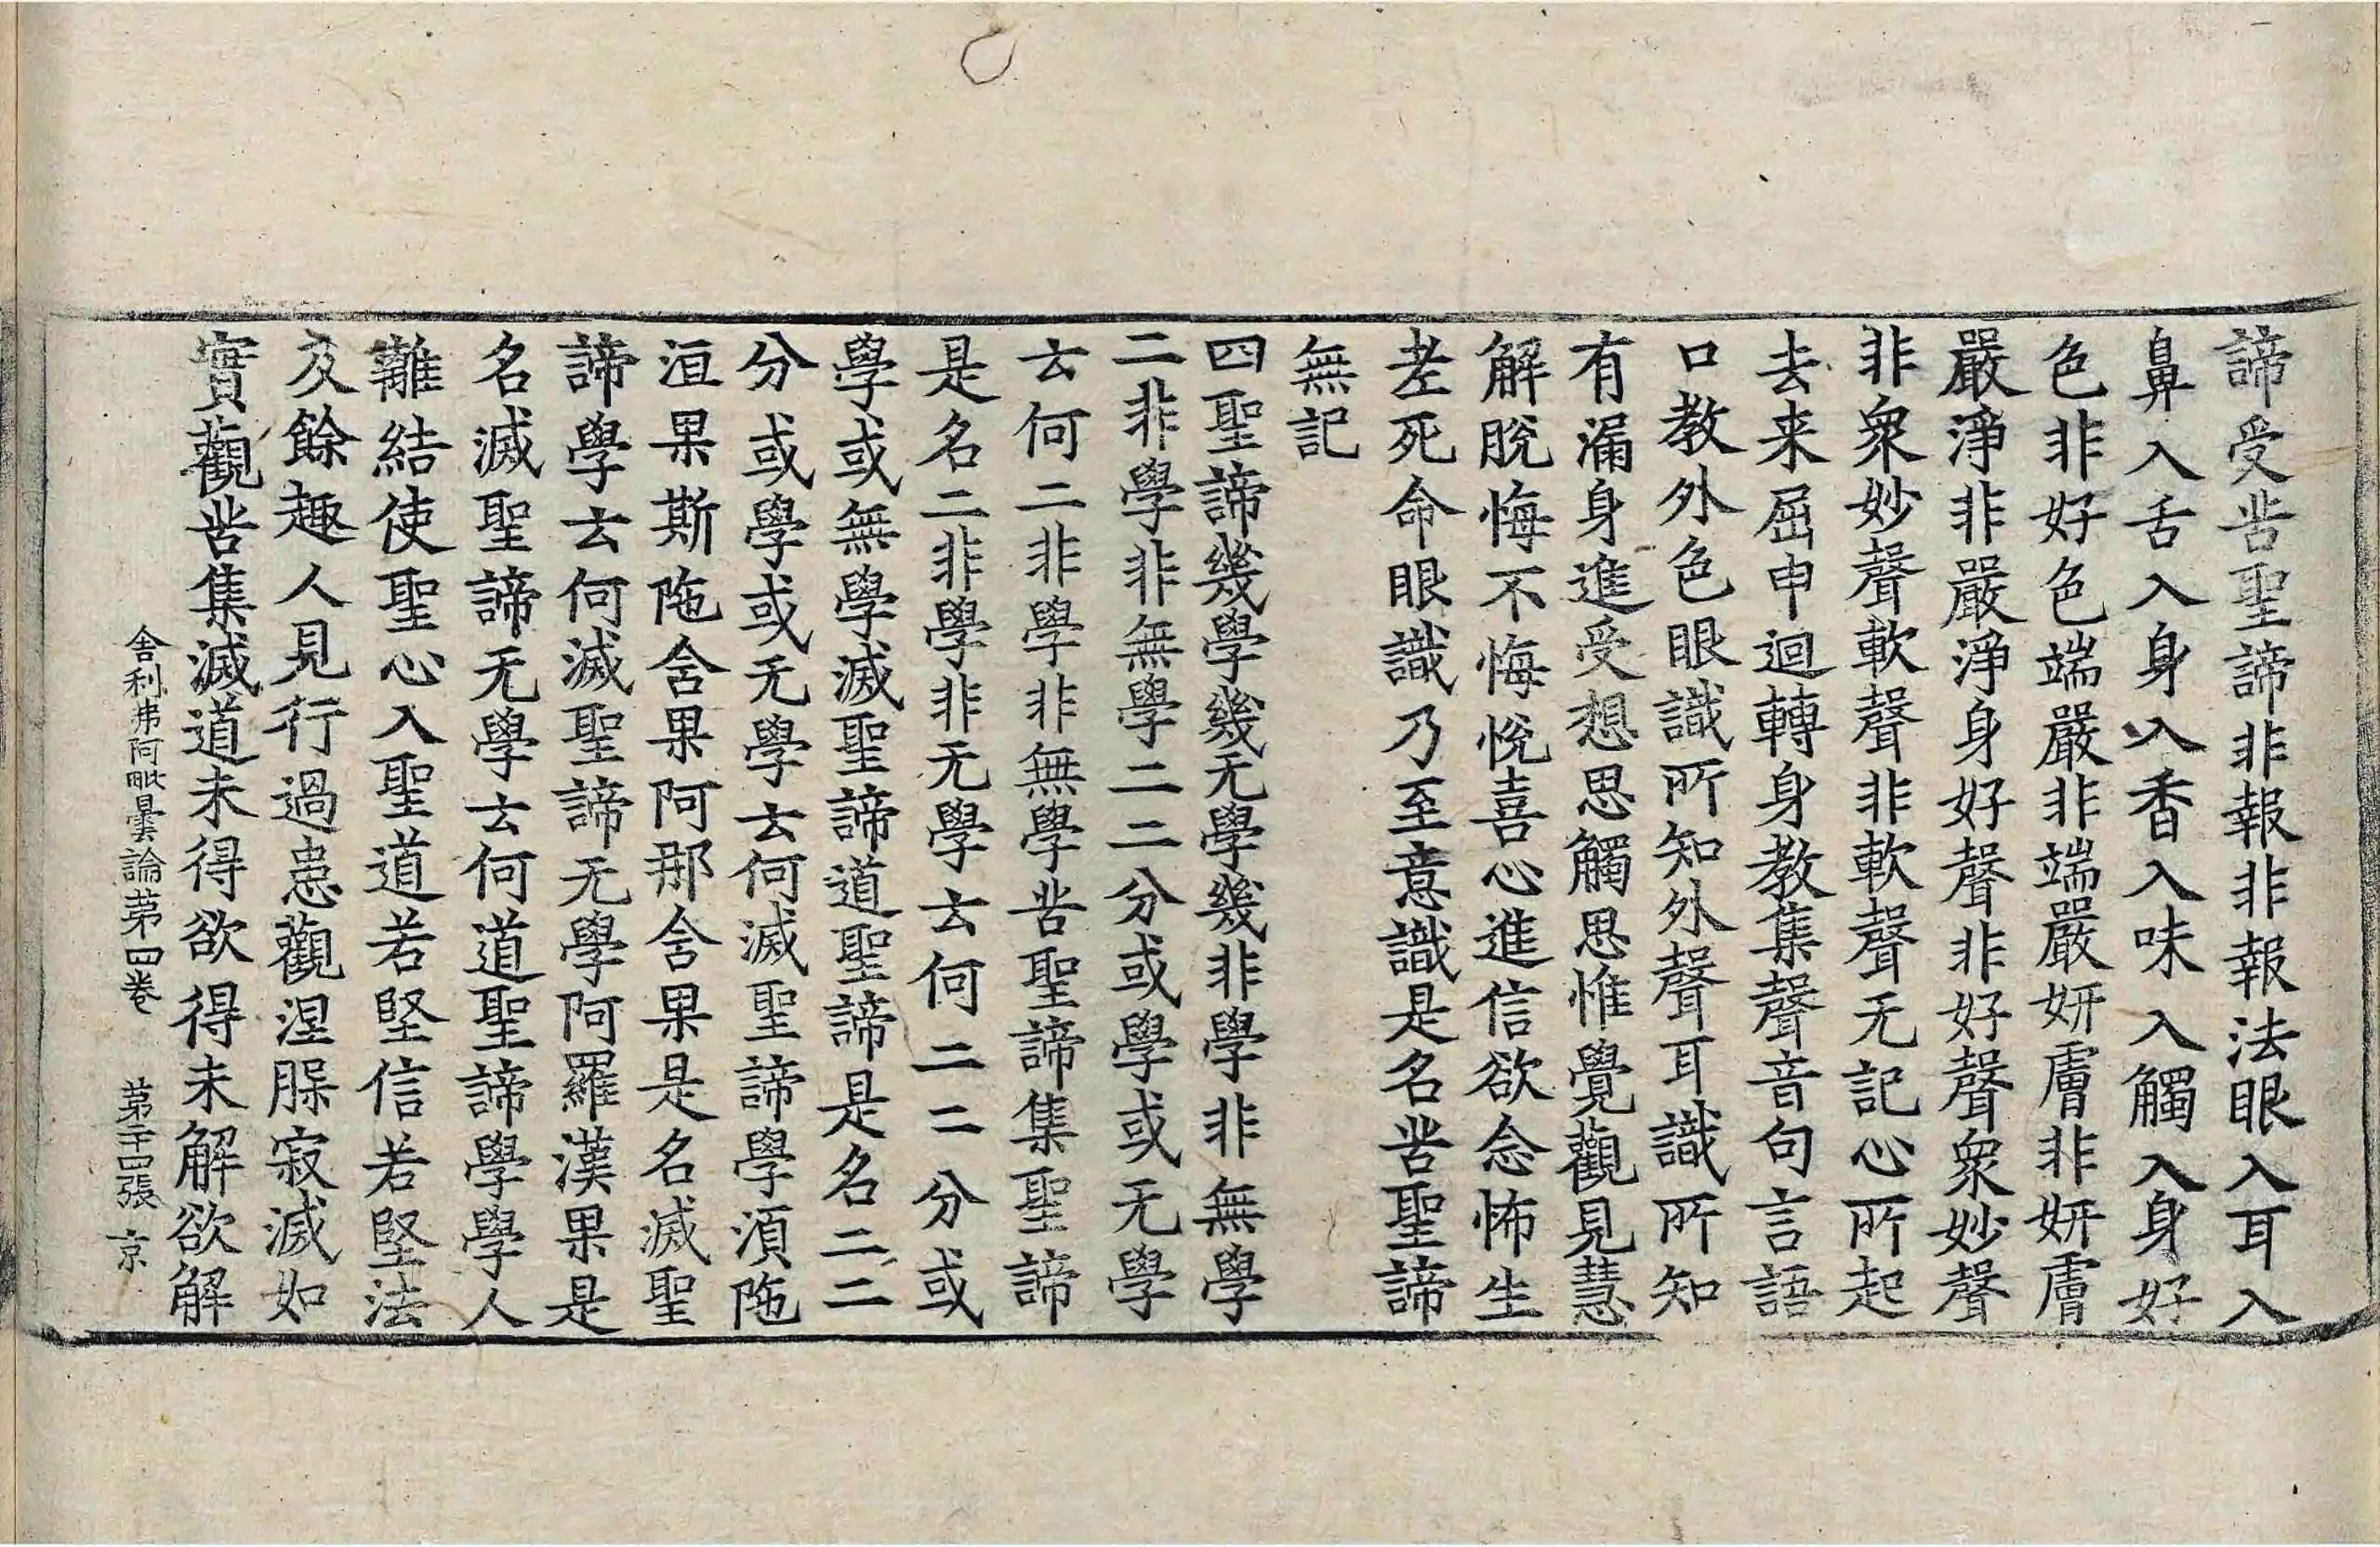 諦受苦聖諦非報非報法眼入耳入
鼻入舌入身入香入味入觸入身好
色非好色端嚴非端嚴妍膚非妍膚
嚴淨非嚴淨身好聲非好聲衆妙聲
非衆妙聲軟聲非軟聲无記心所起
去来屈申迴轉身教集聲音句言語
口教外色眼識所知外聲耳識所知
有漏身進受想思觸思惟覺觀見慧
解脫悔不悔悅喜心進信欲念怖生
老死命眼識乃至意識是名苦聖諦
無記
四聖諦幾學幾无學幾非學非無學
二非學非無學二二分或學或无學
云何二非學非無學苦聖諦集聖諦
是名二非學非无學云何二二分或
學或無學滅聖諦道聖諦是名二二
分或學或无學云何滅聖諦學湏陁
洹果斯陁舍果阿那舍果是名滅聖
諦學云何滅聖諦无學阿羅漢果是
名滅聖諦无學云何道聖諦學學人
離結使聖心入聖道若堅信若堅法
及餘趣人見行過患觀涅𦙁寂滅如
實觀苦集滅道未得欲得未解欲解
舍利弗阿毗曇論苐四卷　苐二十四張　京